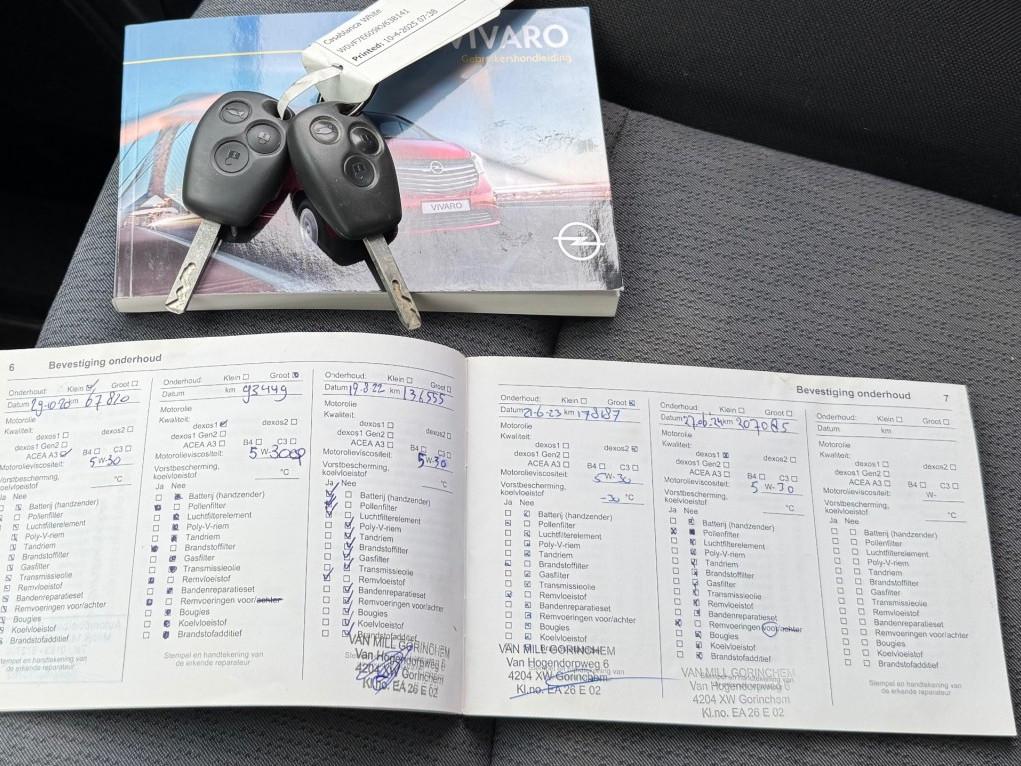 Casablanca White
Printed: 10-4-2025 07:38
VIVARO
Gebruikershandleiding
VIVARO
6
Bevestiging onderhoud
Onderhoud: Klein Groot
Datum 29-10-20 km 67820
Motorolie
Kwaliteit:
dexos1 dexos2
dexos1 Gen2
ACEA A3 B4 C3
Motorolieviscositeit: 5 W-30
Vorstbescherming,
koelvloeistof °C
Ja Nee
Batterij (handzender)
Pollenfilter
Luchtfilterelement
Poly-V-riem
Tandriem
Brandstoffilter
Gasfilter
Transmissieolie
Remvloeistof
Bandenreparatieset
Remvoeringen voor/achter
Bougies
Koelvloeistof
Brandstofadditief
Stempel en handtekening van
de erkende reparateur
Onderhoud: Klein Groot
Datum km 93449
Motorolie
Kwaliteit:
dexos1 dexos2
dexos1 Gen2
ACEA A3 B4 C3
Motorolieviscositeit: 5 W-30
Vorstbescherming,
koelvloeistof °C
Ja Nee
Batterij (handzender)
Pollenfilter
Luchtfilterelement
Poly-V-riem
Tandriem
Brandstoffilter
Gasfilter
Transmissieolie
Remvloeistof
Bandenreparatieset
Remvoeringen voor/achter
Bougies
Koelvloeistof
Brandstofadditief
Stempel en handtekening van
de erkende reparateur
Onderhoud: Klein Groot
Datum 19-8-22 km 136555
Motorolie
Kwaliteit:
dexos1 dexos2
dexos1 Gen2
ACEA A3 B4 C3
Motorolieviscositeit: 5 W-30
Vorstbescherming,
koelvloeistof °C
Ja Nee
Batterij (handzender)
Pollenfilter
Luchtfilterelement
Poly-V-riem
Tandriem
Brandstoffilter
Gasfilter
Transmissieolie
Remvloeistof
Bandenreparatieset
Remvoeringen voor/achter
Bougies
Koelvloeistof
Brandstofadditief
VAN MILL GORINCHEM
Van Hogendorpweg 6
4204 XW Gorinchem
Kl.no. EA 26 E 02
Bevestiging onderhoud
7
Onderhoud: Klein Groot
Datum 21-6-23 km
Motorolie
Kwaliteit:
dexos1 dexos2
dexos1 Gen2
ACEA A3 B4 C3
Motorolieviscositeit: 5 W-30
Vorstbescherming,
koelvloeistof -30 °C
Ja Nee
Batterij (handzender)
Pollenfilter
Luchtfilterelement
Poly-V-riem
Tandriem
Brandstoffilter
Gasfilter
Transmissieolie
Remvloeistof
Bandenreparatieset
Remvoeringen voor/achter
Bougies
Koelvloeistof
VAN MILL GORINCHEM
Van Hogendorpweg 6
4204 XW Gorinchem
Kl.no. EA 26 E 02
Onderhoud: Klein Groot
Datum 27-06-24 km 207085
Motorolie
Kwaliteit:
dexos1 dexos2
dexos1 Gen2
ACEA A3 B4 C3
Motorolieviscositeit: 5 W-30
Vorstbescherming,
koelvloeistof °C
Ja Nee
Batterij (handzender)
Pollenfilter
Luchtfilterelement
Poly-V-riem
Tandriem
Brandstoffilter
Gasfilter
Transmissieolie
Remvloeistof
Bandenreparatieset
Remvoeringen voor/achter
Bougies
Koelvloeistof
Brandstofadditief
VAN MILL GORINCHEM
Van Hogendorpweg 6
4204 XW Gorinchem
Kl.no. EA 26 E 02
Onderhoud: Klein Groot
Datum km
Motorolie
Kwaliteit:
dexos1 dexos2
dexos1 Gen2
ACEA A3 B4 C3
Motorolieviscositeit: W-
Vorstbescherming,
koelvloeistof °C
Ja Nee
Batterij (handzender)
Pollenfilter
Luchtfilterelement
Poly-V-riem
Tandriem
Brandstoffilter
Gasfilter
Transmissieolie
Remvloeistof
Bandenreparatieset
Remvoeringen voor/achter
Bougies
Koelvloeistof
Brandstofadditief
Stempel en handtekening van
de erkende reparateur